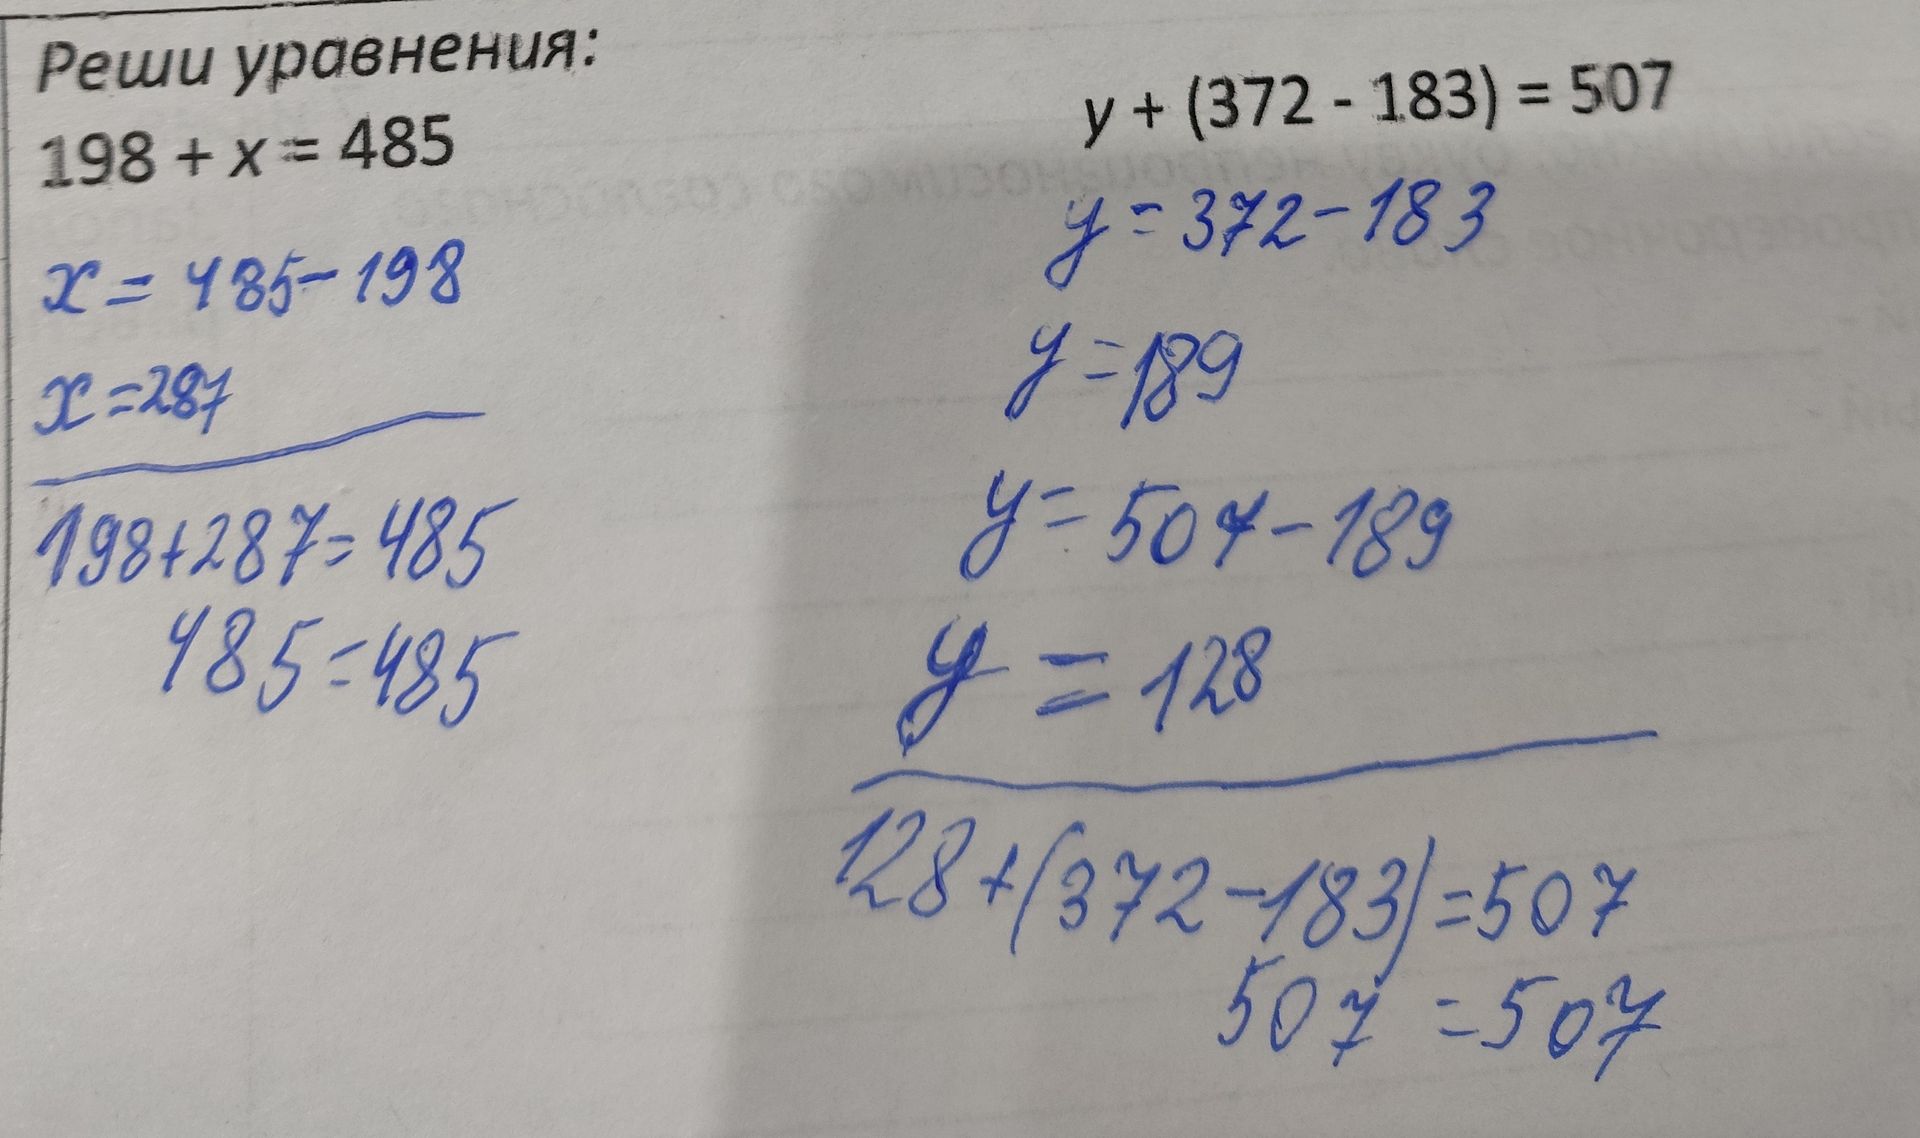 Реши уравнения:
198 + x = 485
x = 485 - 198
x = 287
198+287=485
485=485
y + (372 - 183) = 507
y = 372 - 183
y = 189
y = 507 - 189
y = 128
128+(372-183)=507
507 = 507